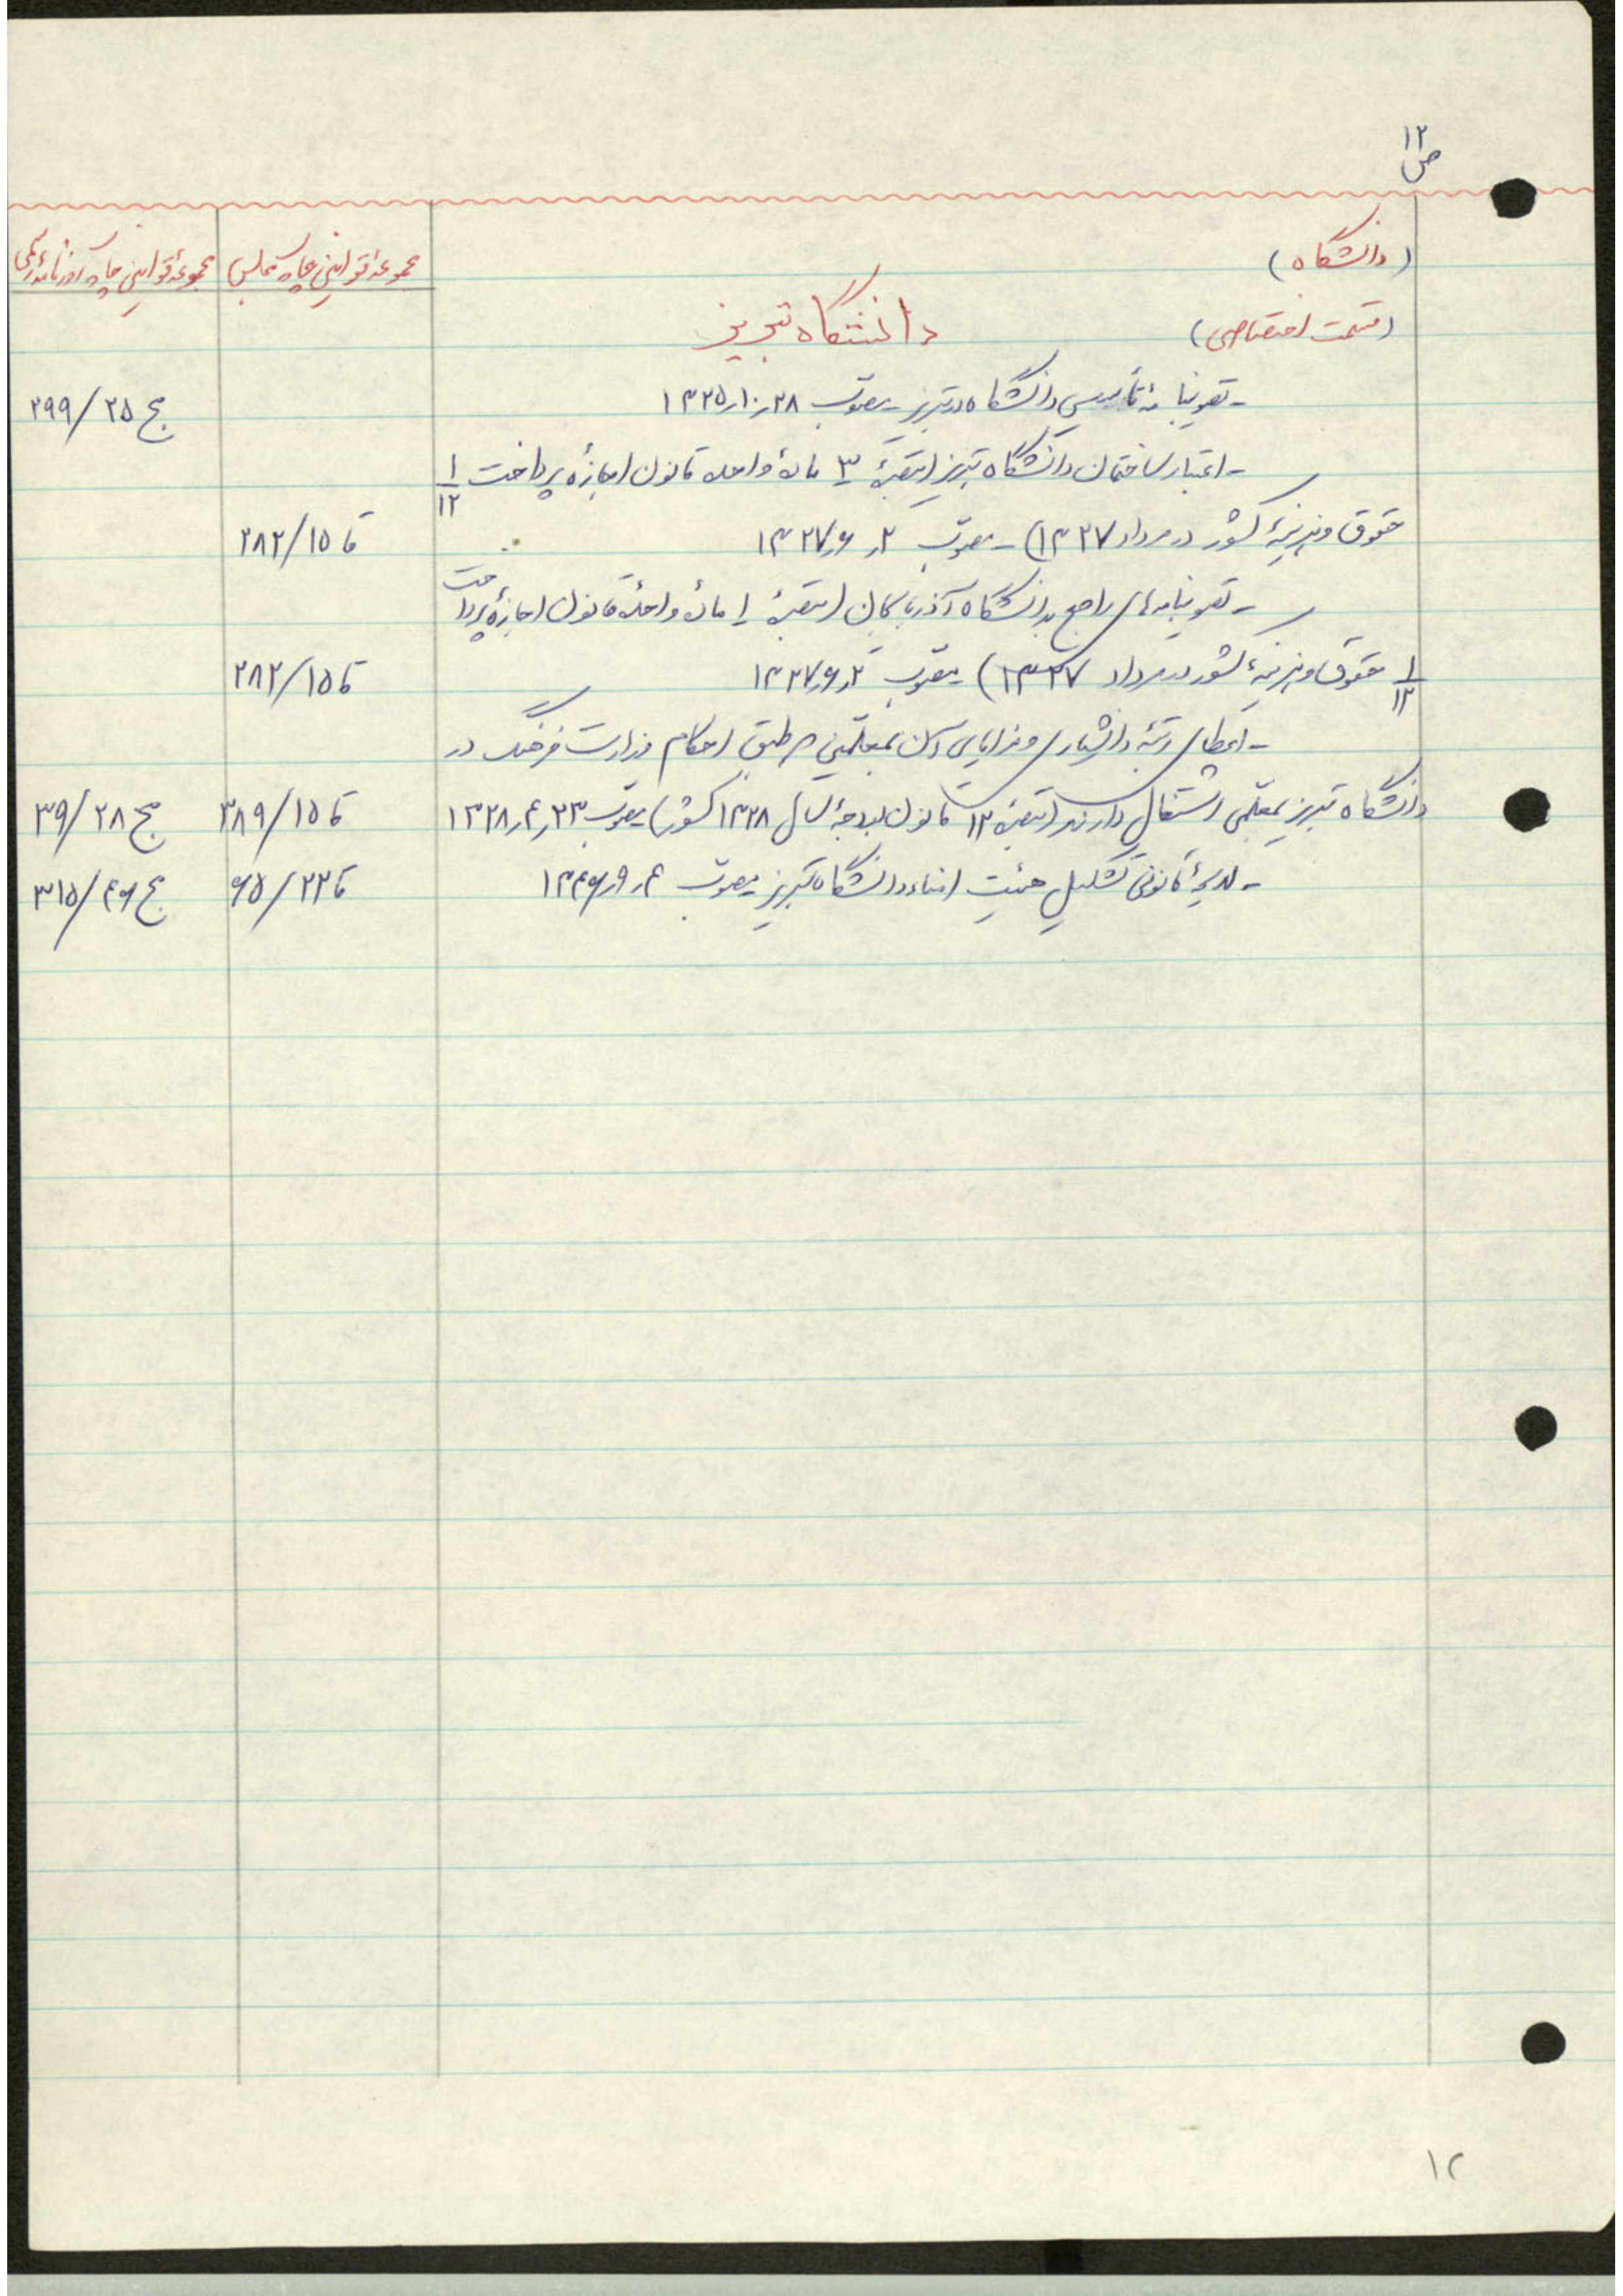 ۱۲
ص
(دانشگاه)
مجموعه قوانین چاپ مجلس
مجموعه قوانین چاپ روزنامه رسمی
(قسمت اختصاصی)
دانشگاه تبریز
- تصویبنامهٔ تأسیس دانشگاه در تبریز - مصوب ۱۳۲۵٫۱۰٫۲۸
ج ۲۵/۲۹۹
- اعتبار ساختمان دانشگاه تبریز (تبصرهٔ ۳ مادهٔ واحده قانون اجازهٔ پرداخت ۱/۱۲
حقوق و هزینهٔ کشور در مرداد ۱۳۲۷) - مصوب ۱۳۲۷٫۶٫۲
قا ۱۵/۲۸۲
- تصویبنامه‌های راجع بدانشگاه آذربایجان (تبصرهٔ ۱ مادهٔ واحدهٔ قانون اجازهٔ پرداخت
۱/۱۲ حقوق و هزینهٔ کشور در مرداد ۱۳۲۷) مصوب ۱۳۲۷٫۶٫۲
قا ۱۵/۲۸۲
- اعطای رتبهٔ دانشیاری و مزایای آن بمعلمینی که طبق احکام وزارت فرهنگ در
دانشگاه تبریز بمعلمی اشتغال دارند (تبصره ۱۲ قانون بودجهٔ سال ۱۳۲۸ کشور) مصوب ۱۳۲۸٫۴٫۲۳
قا ۱۵/۳۸۹
مج ۲۸/۳۹
- لایحهٔ قانونی تشکیل هیئت امناء دانشگاه تبریز مصوب ۱۳۴۶٫۹٫۴
قا ۲۲/۶۵
ج ۴۶/۳۱۵
۱۲